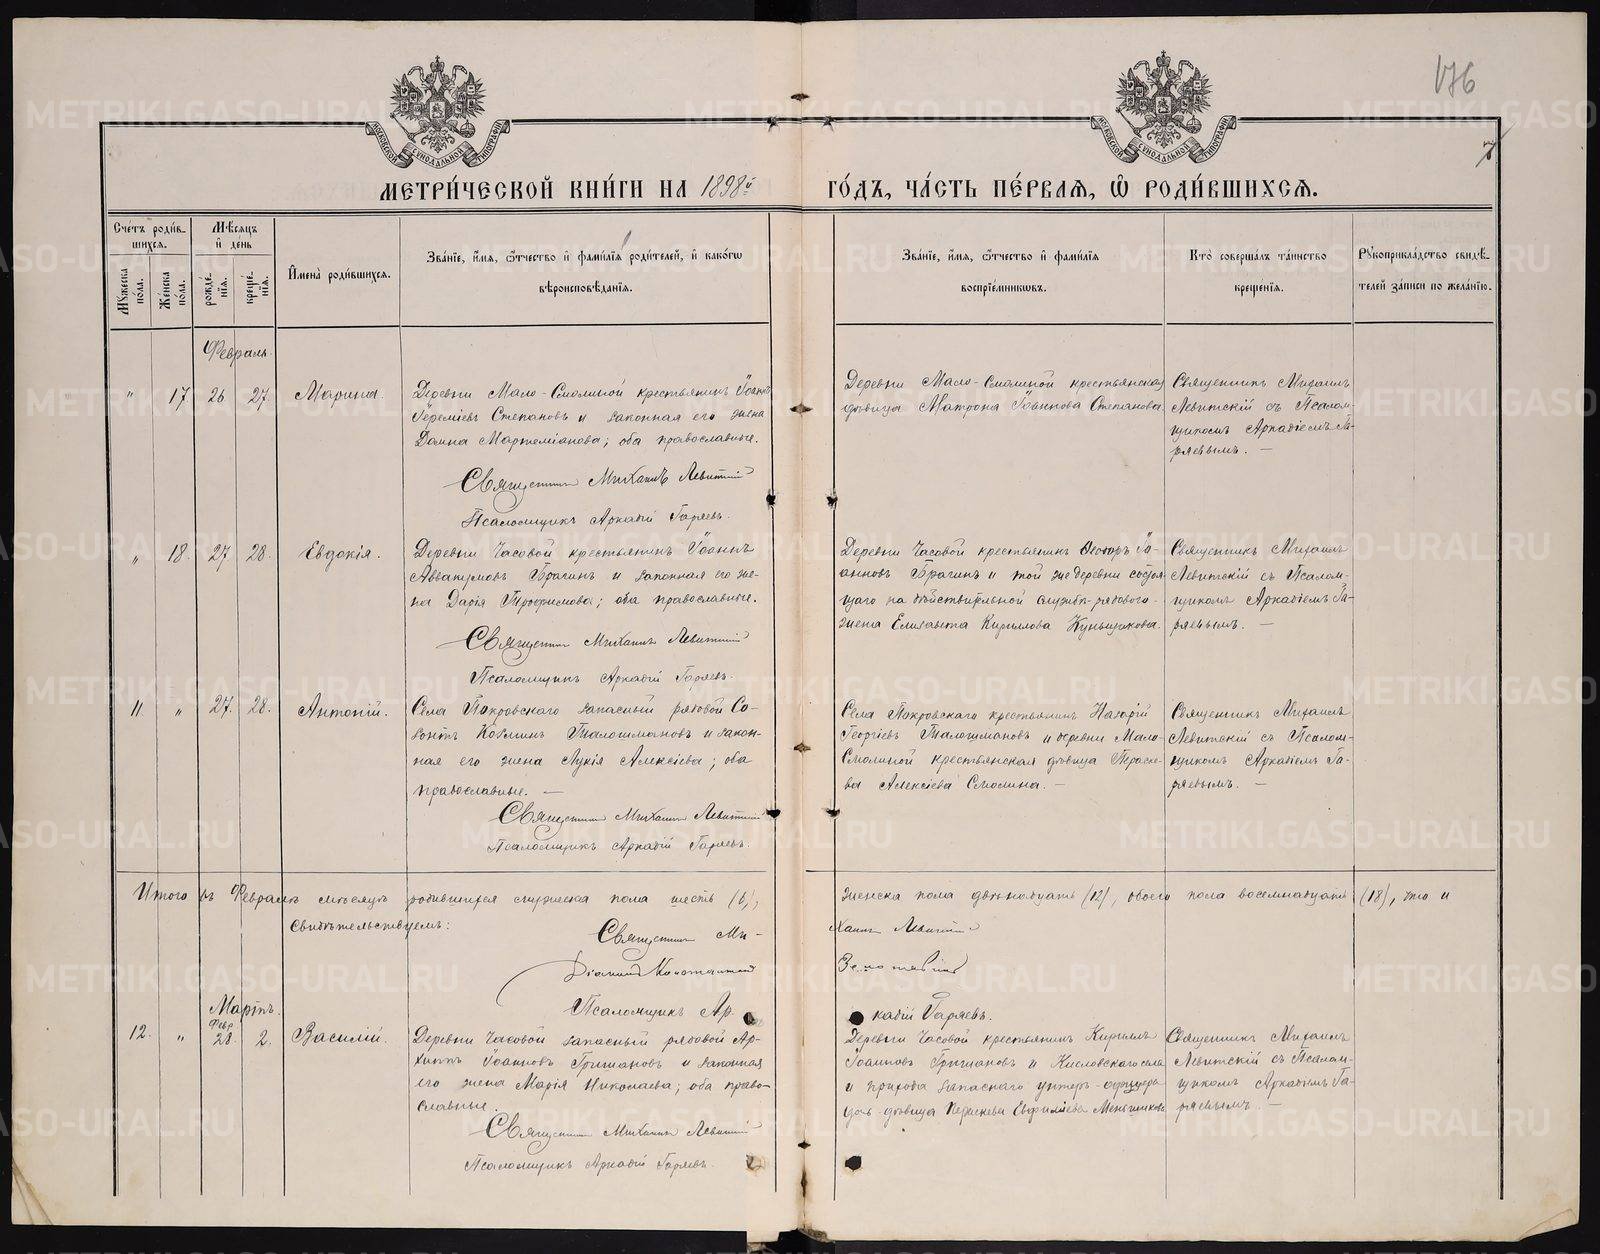 176
7
МОСКОВСКОЙ СѴНОДАЛЬНОЙ ТИПОГРАФІИ
МОСКОВСКОЙ СѴНОДАЛЬНОЙ ТИПОГРАФІИ
МЕТРИ́ЧЕСКОЙ КНИ́ГИ НА 1898й ГО́ДЪ, ЧА́СТЬ ПЕ́РВАѦ, Ѡ҆ РОДИ́ВШИХСѦ.
Счетъ роди́в-
шихся.
Мѣсяцъ
и҆ де́нь
Мꙋжеска по́ла.
Же́нска по́ла.
рожде́нїя.
креще́нїя.
И҆мена̀ роди́вшихся.
Зва́нїе, и҆́мя, ѻ҆́тчество и҆ фами́лїя роди́телей, и҆ како́гѡ
вѣроисповѣ́данїя.
Зва́нїе, и҆́мя, ѻ҆́тчество и҆ фами́лїя
воспрїе́мникѡвъ.
Кто̀ соверша́лъ та́инство
креще́нїя.
Рꙋкоприкла́дство свидѣ́-
телей за́писи по жела́нїю.
Февраль.
" 17 26 27 Марина.
Деревни Мало-Смолиной крестьянинъ Іоаннъ
Іереміевъ Степановъ и законная его жена
Домна Мартеміанова; оба православные.
Священникъ Михаилъ Левитскій
Псаломщикъ Аркадій Гаряевъ.
Деревни Мало-Смолиной крестьянская
дѣвица Матрона Іоаннова Степанова
Священникъ Михаилъ
Левитскій съ Псалом-
щикомъ Аркадіемъ Га-
ряевымъ. —
" 18. 27. 28. Евдокія.
Деревни Часовой крестьянинъ Іоаннъ
Аввакумовъ Брагинъ и законная его же-
на Дарія Трофимова; оба православные.
Священникъ Михаилъ Левитскій
Псаломщикъ Аркадій Гаряевъ.
Деревни Часовой крестьянинъ Ѳеодоръ Іо-
анновъ Брагинъ и той же деревни состоя-
щаго на дѣйствительной службѣ рядового
жена Елизавета Кириллова Куньщикова.
Священникъ Михаилъ
Левитскій съ Псалом-
щикомъ Аркадіемъ Га-
ряевымъ. —
11. " 27. 28. Антоній.
Села Покровскаго запасный рядовой Со-
зонтъ Козминъ Талашмановъ и закон-
ная его жена Лукія Алексіева; оба
православные. —
Священникъ Михаилъ Левитскій
Псаломщикъ Аркадій Гаряевъ.
Села Покровскаго крестьянинъ Назарій
Георгіевъ Талашмановъ и деревни Мало-
Смолиной крестьянская дѣвица Параске-
ва Алексіева Смолина. —
Священникъ Михаилъ
Левитскій съ Псалом-
щикомъ Аркадіемъ Га-
ряевымъ. —
Итого въ Февралѣ мѣсяцѣ родившихся мужеска пола шесть (6), женска пола двѣнадцать (12), обоего пола восемнадцать (18), что и
свидѣтельствуемъ:
Священникъ Михаилъ Левитскій
Діаконъ Константинъ
Псаломщикъ Аркадій Гаряевъ.
Мартъ.
12. " Февр. 28. 2. Василій.
Деревни Часовой запасный рядовой Ар-
хиппъ Іоанновъ Гришановъ и законная
его жена Марія Николаева; оба право-
славные.
Священникъ Михаилъ Левитскій
Псаломщикъ Аркадій Гаряевъ.
Деревни Часовой крестьянинъ Кириллъ
Іоанновъ Гришановъ и Кисловскаго села
и прихода запаснаго унтеръ-офицера
дочь дѣвица Параскева Евфиміева Меньшикова
Священникъ Михаилъ
Левитскій съ Псалом-
щикомъ Аркадіемъ Га-
ряевымъ. —
METRIKI.GASO-URAL.RU